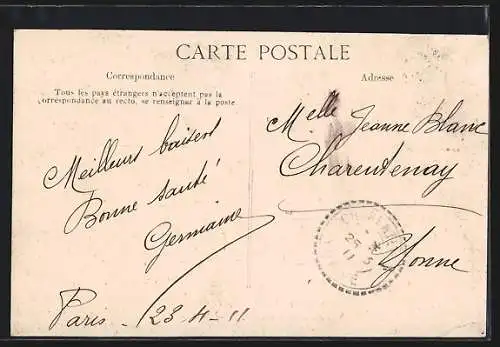 CARTE POSTALE
Correspondance
Tous les pays étrangers n'acceptent pas la
correspondance au recto, se renseigner à la poste
Meilleurs baisers
Bonne santé
Germaine
Paris - 23-4-11
Adresse
Melle Jeanne Blanc
Charentenay
Yonne
25
11